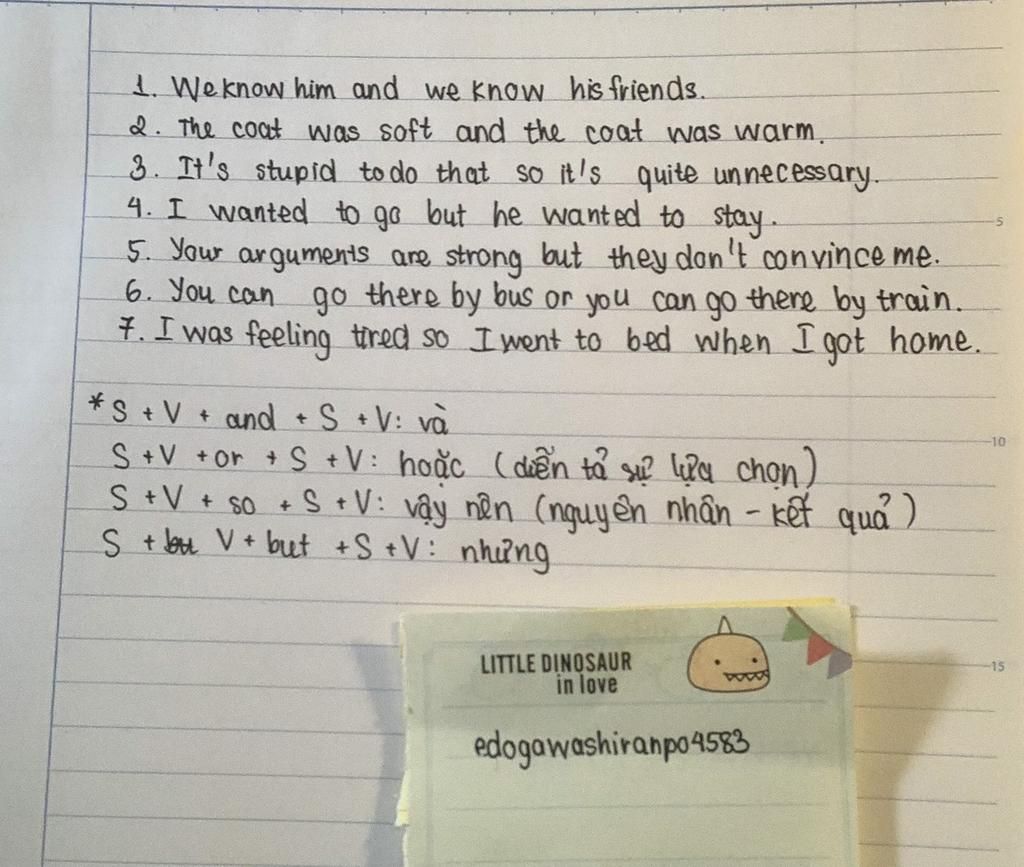 1. We know him and we know his friends.
2. The coat was soft and the coat was warm.
3. It's stupid to do that so it's quite unnecessary.
4. I wanted to go but he wanted to stay.
5
5. Your arguments are strong but they don't convince me.
6. You can go there by bus or you can go there by train.
7. I was feeling tired so I went to bed when I got home.
*S + V + and + S + V: và
10
S + V + or + S + V: hoặc (diễn tả sự lựa chọn)
S + V + so + S + V: vậy nên (nguyên nhân - kết quả)
S + bu V + but + S + V: nhưng
LITTLE DINOSAUR
in love
15
edogawashiranpo4583